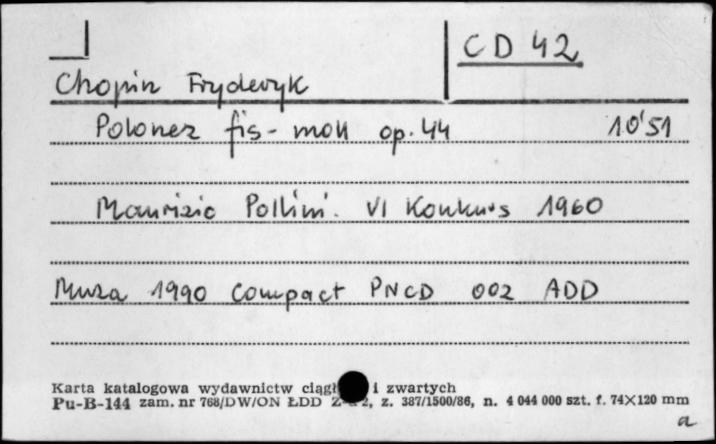 CD 42
Chopin Fryderyk
Polonez fis-moll op. 44 10'51
Maurizio Pollini. VI Konkurs 1960
Muza 1990 Compact PNCD 002 ADD
Karta katalogowa wydawnictw ciągł i zwartych
Pu-B-144 zam. nr 768/DW/ON ŁDD 2, z. 387/1500/86, n. 4 044 000 szt. f. 74×120 mm
a